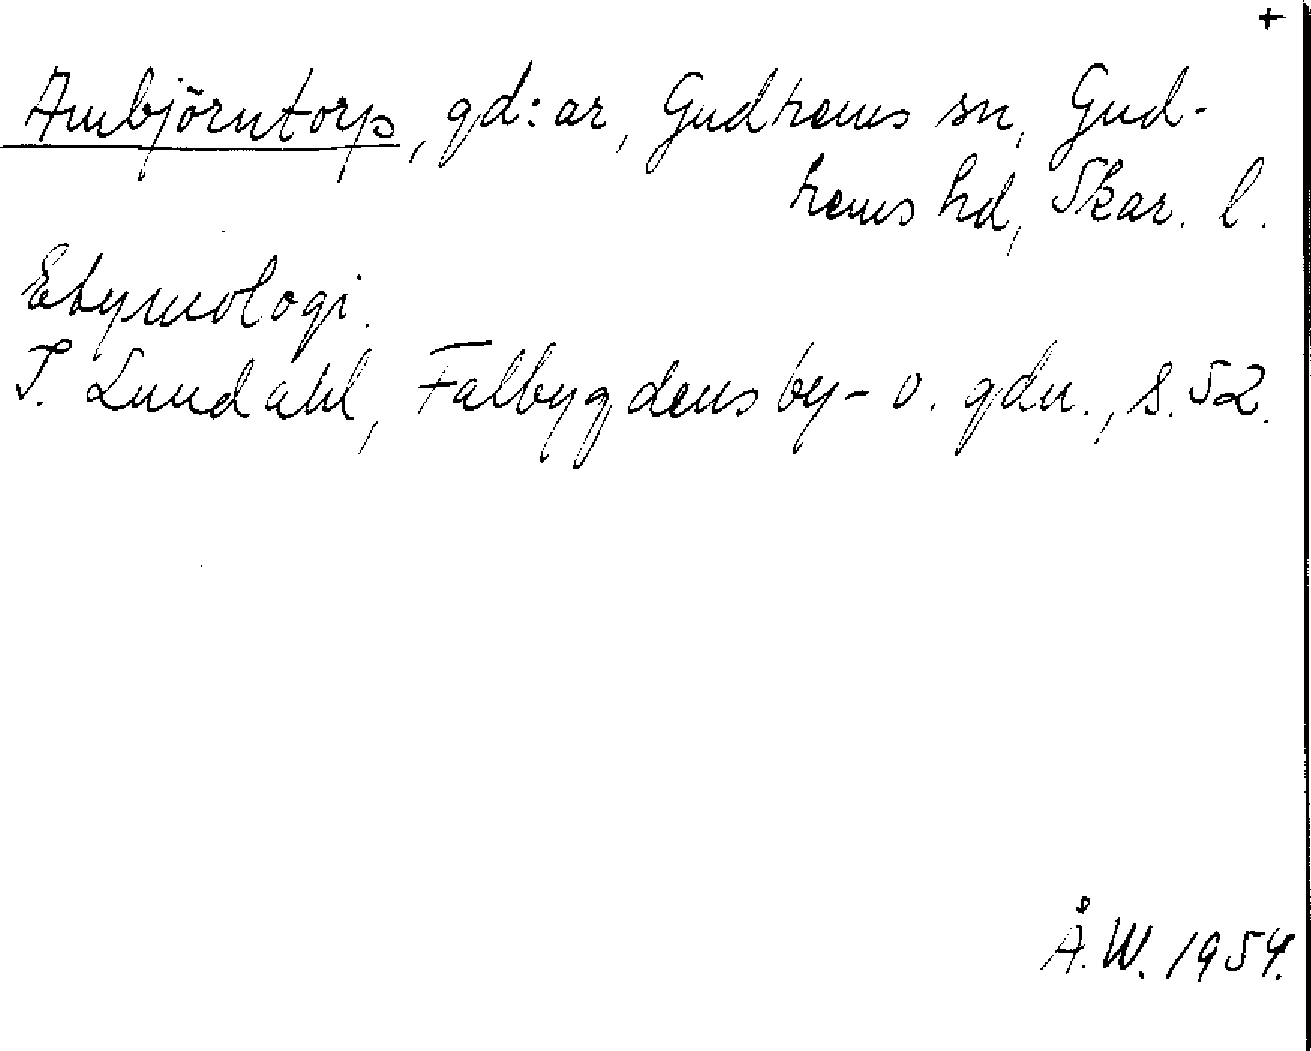 +
Ambjörntorp, gd:ar, Gudhems sn, Gud-
hems hd, Skar. l.
Etymologi.
I. Lundahl, Falbygdens by- o. gdn., s. 52.
Å. W. 1954.